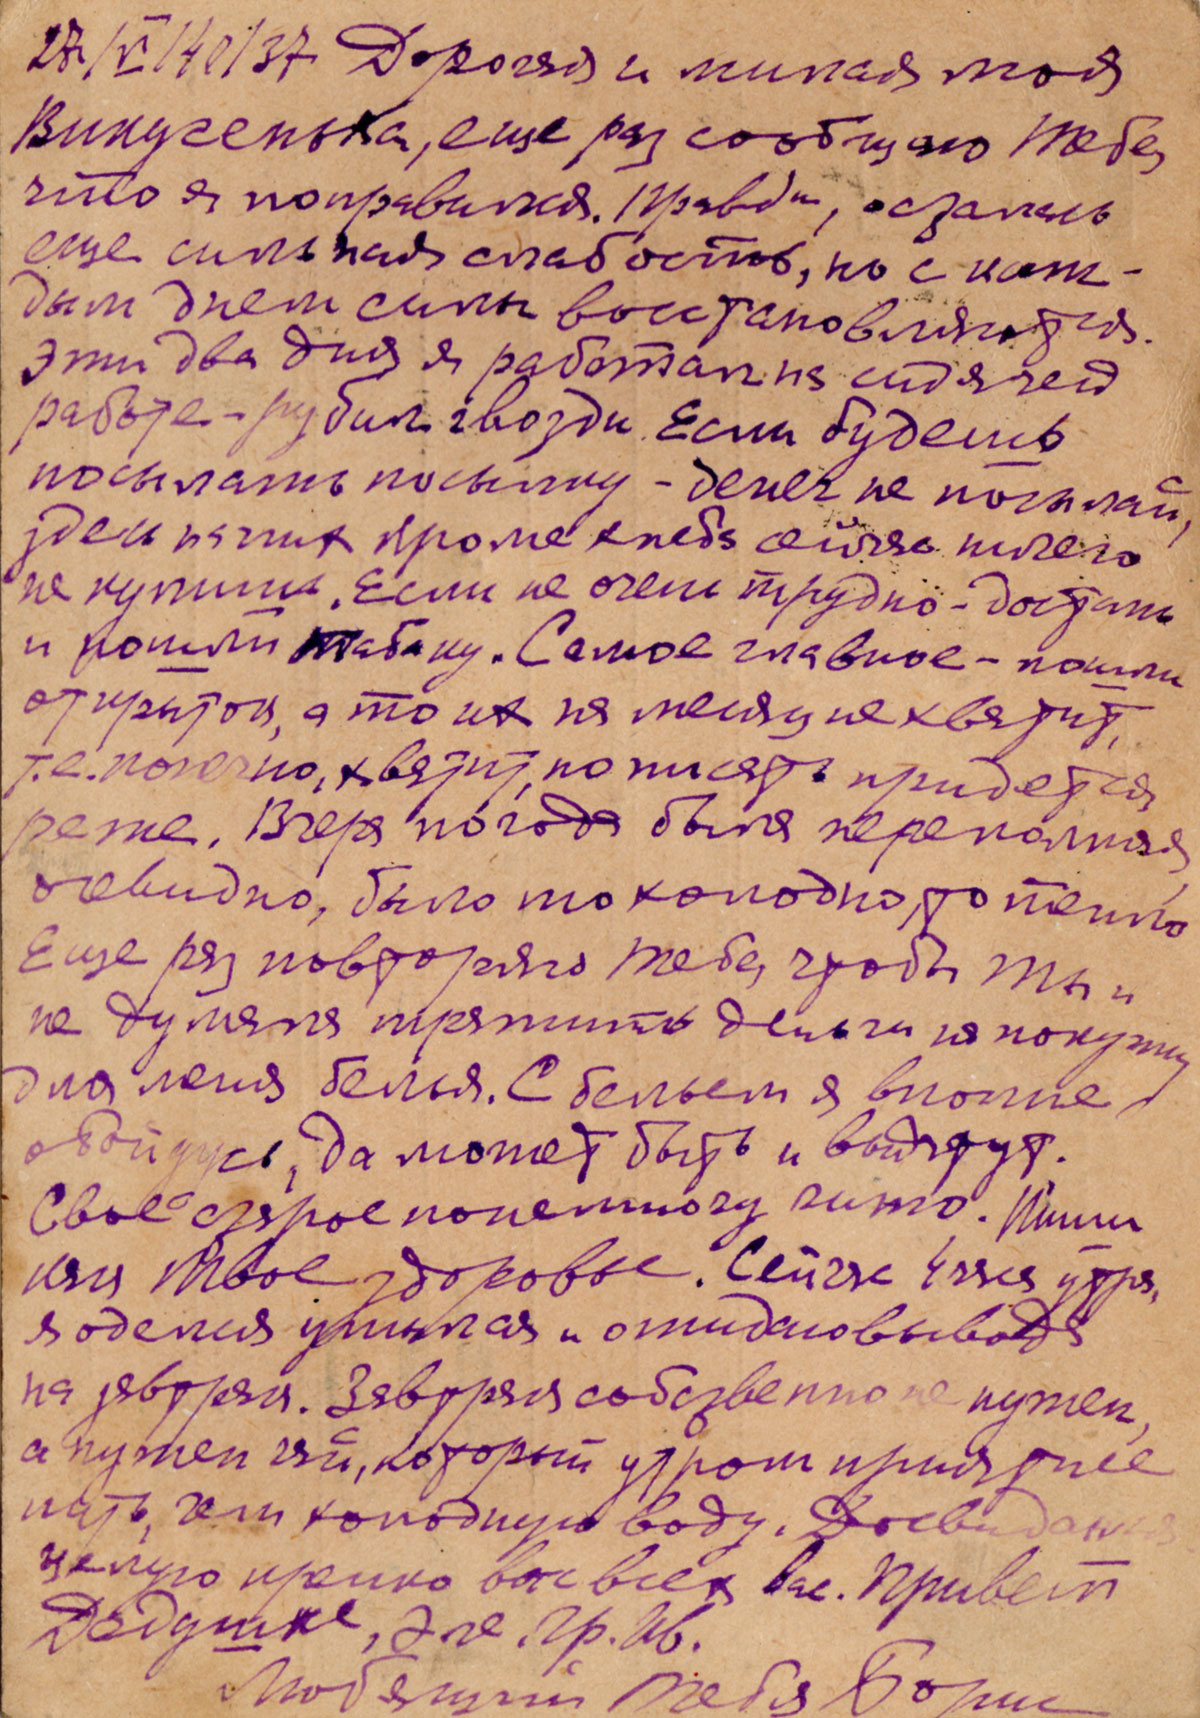 27/V/40/37. Дорогая и милая моя
Викусенька, еще раз сообщаю тебе,
что я поправился. Правда, осталась
еще сильная слабость, но с каж-
дым днем силы восстановляются.
Эти два дня я работал на сидячей
работе - рубил гвозди. Если будешь
посылать посылку - денег не посылай,
здесь на них кроме хлеба сейчас ничего
не купишь. Если не очень трудно - достань
и пошли табаку. Самое главное - пошли
открыток, а то их на месяц не хватит,
т.е. конечно, хватит, но писать придется
реже. Вчера погода была переменная,
очевидно, было то холодно, то тепло
Еще раз повторяю тебе, чтобы ты и
не думала тратить деньги на покупку
для меня белья. С бельем я вполне
обойдусь, да может быть и выдадут.
Свое старое понемногу чиню. Пиши
как твое здоровье. Сейчас 4 часа утра,
я оделся умылся и ожидаю вывода
на завтрак. Завтрак собственно не нужен,
а нужен чай, который утром приятнее
пить, чем холодную воду. Досвидания
целую крепко вас всех вас. Привет
Дедушке, Эле, Гр. Ив.
Любящий тебя Борис